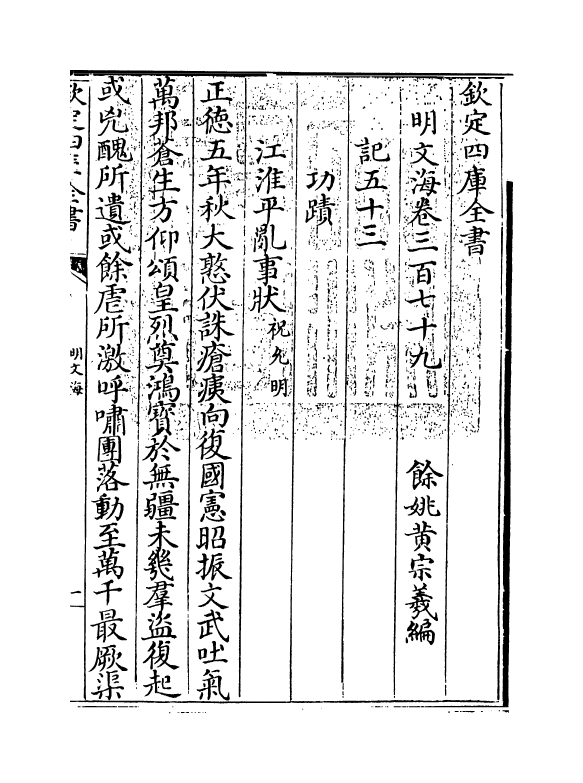 欽定四庫全書
明文海卷三百七十九　餘姚黄宗羲編
記五十三
功蹟
江淮平亂事狀祝允明
正德五年秋大憝伏誅瘡痍向復國憲昭振文武吐氣
萬邦蒼生方仰頌皇烈奠鴻寳於無疆未幾羣盜復起
或兇醜所遺或餘虐所激呼嘯團落動至萬千最厥渠
欽定四庫全書
明文海